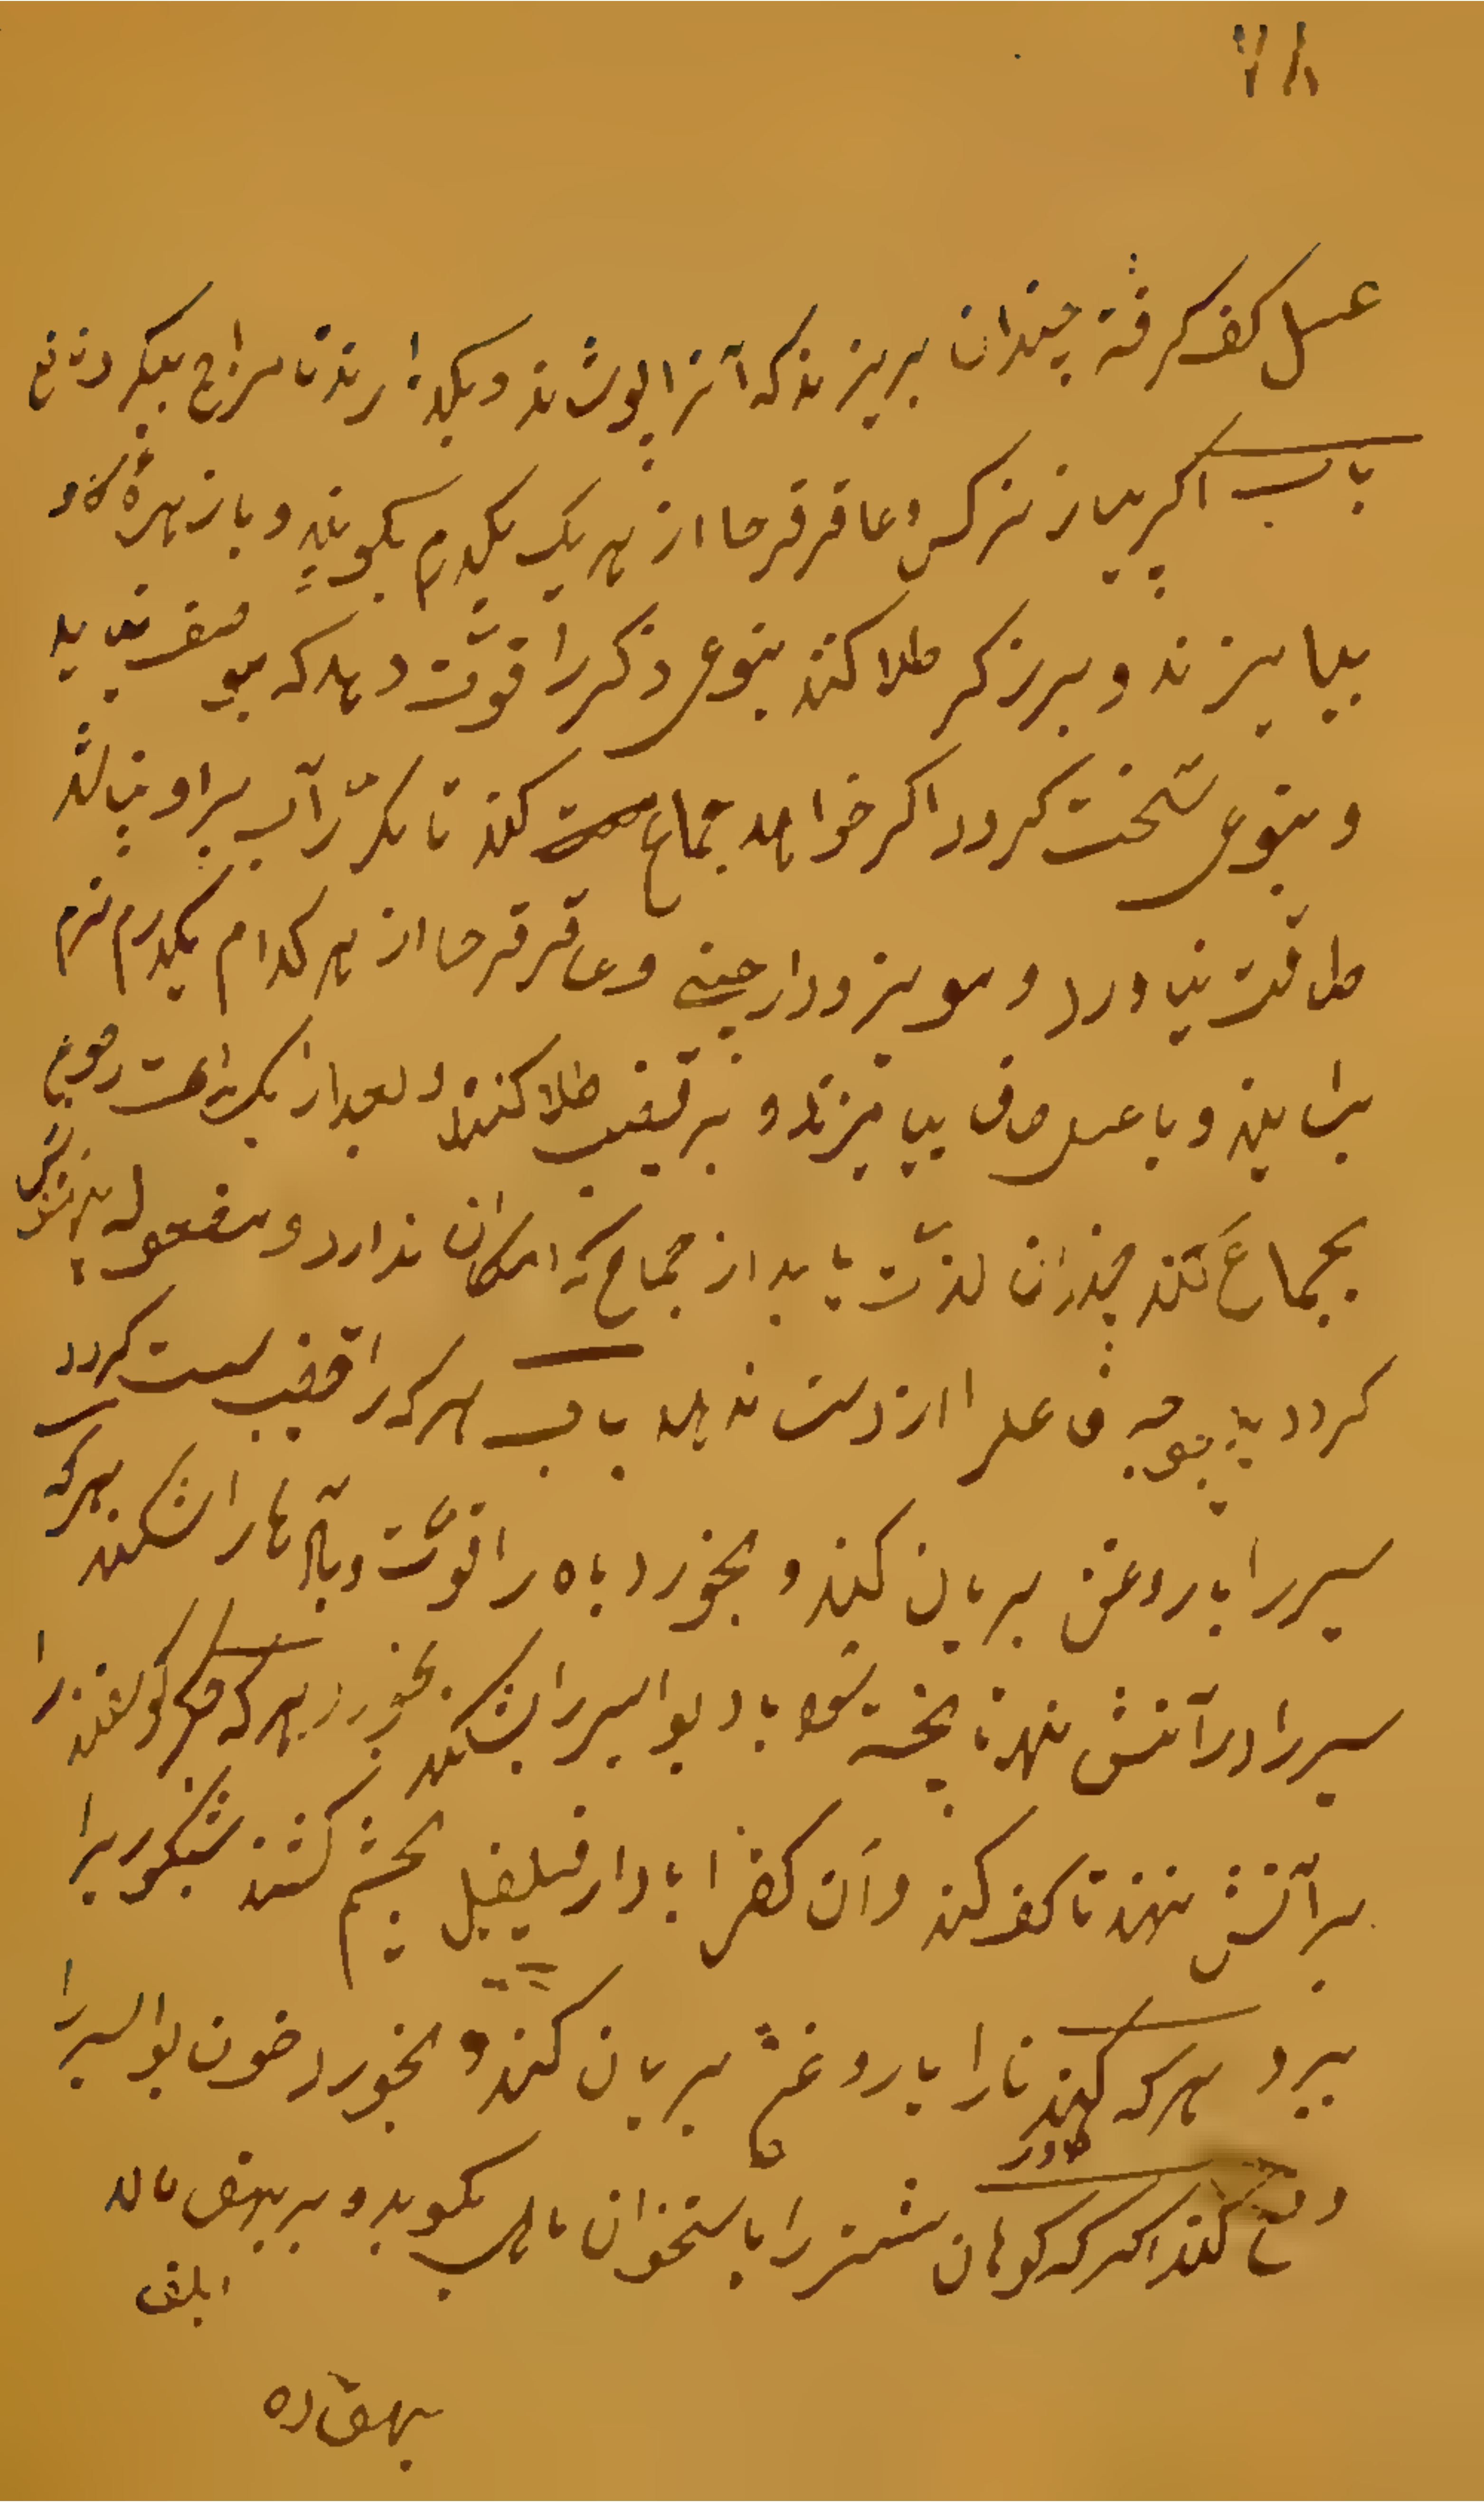 ۷۸
عسل کف گرفته چندان بریزند که آنرا بپوشند و بگذارند تا مزاج بگیرد
باب اگر پیاز نرگس و عاقرقرحا از هر یک یکدرم بکوبند و با زهره گاو
بیامیزند و بر ذکر طلا کنند بنوعی ذکر را قوت دهد که
و بنوعی سخت گردد اگر خواهد جماع کند تا مکرر آب بر او
طاقت نیاورد و مویز و دارچینی و عاقرقرحا از هر کدام یکدرم نرم
بسایند و با عسل صاف بیامیزند و بر قضیب طلا کنند و بعد از یک ساعت رجوع
بجماع کند چندان لذت یابد از جماع که امکان ندارد و مفعوله
گردد بهیچوجه فاعل را از دست ندهد باب هر که را قضیب سست گردد
سیر را با روغن بریان کند و بخورد باه را قوت دهد هر که
سیر را در آتش نهد تا پخته شود باد بواسیر را بخورد هر که گوسفند را
بر آتش نهند تا کف کند و آن کف را با دارفلفل بچشم کشند شبکوری را
ببرد هر که گندنا را با روغن گاو بریان کند و بخورد خون بواسیر را
دفع کند اگر کوهان شتر را با استخوان بکوبد و بر بهق مالد
ابلق
بهق ده